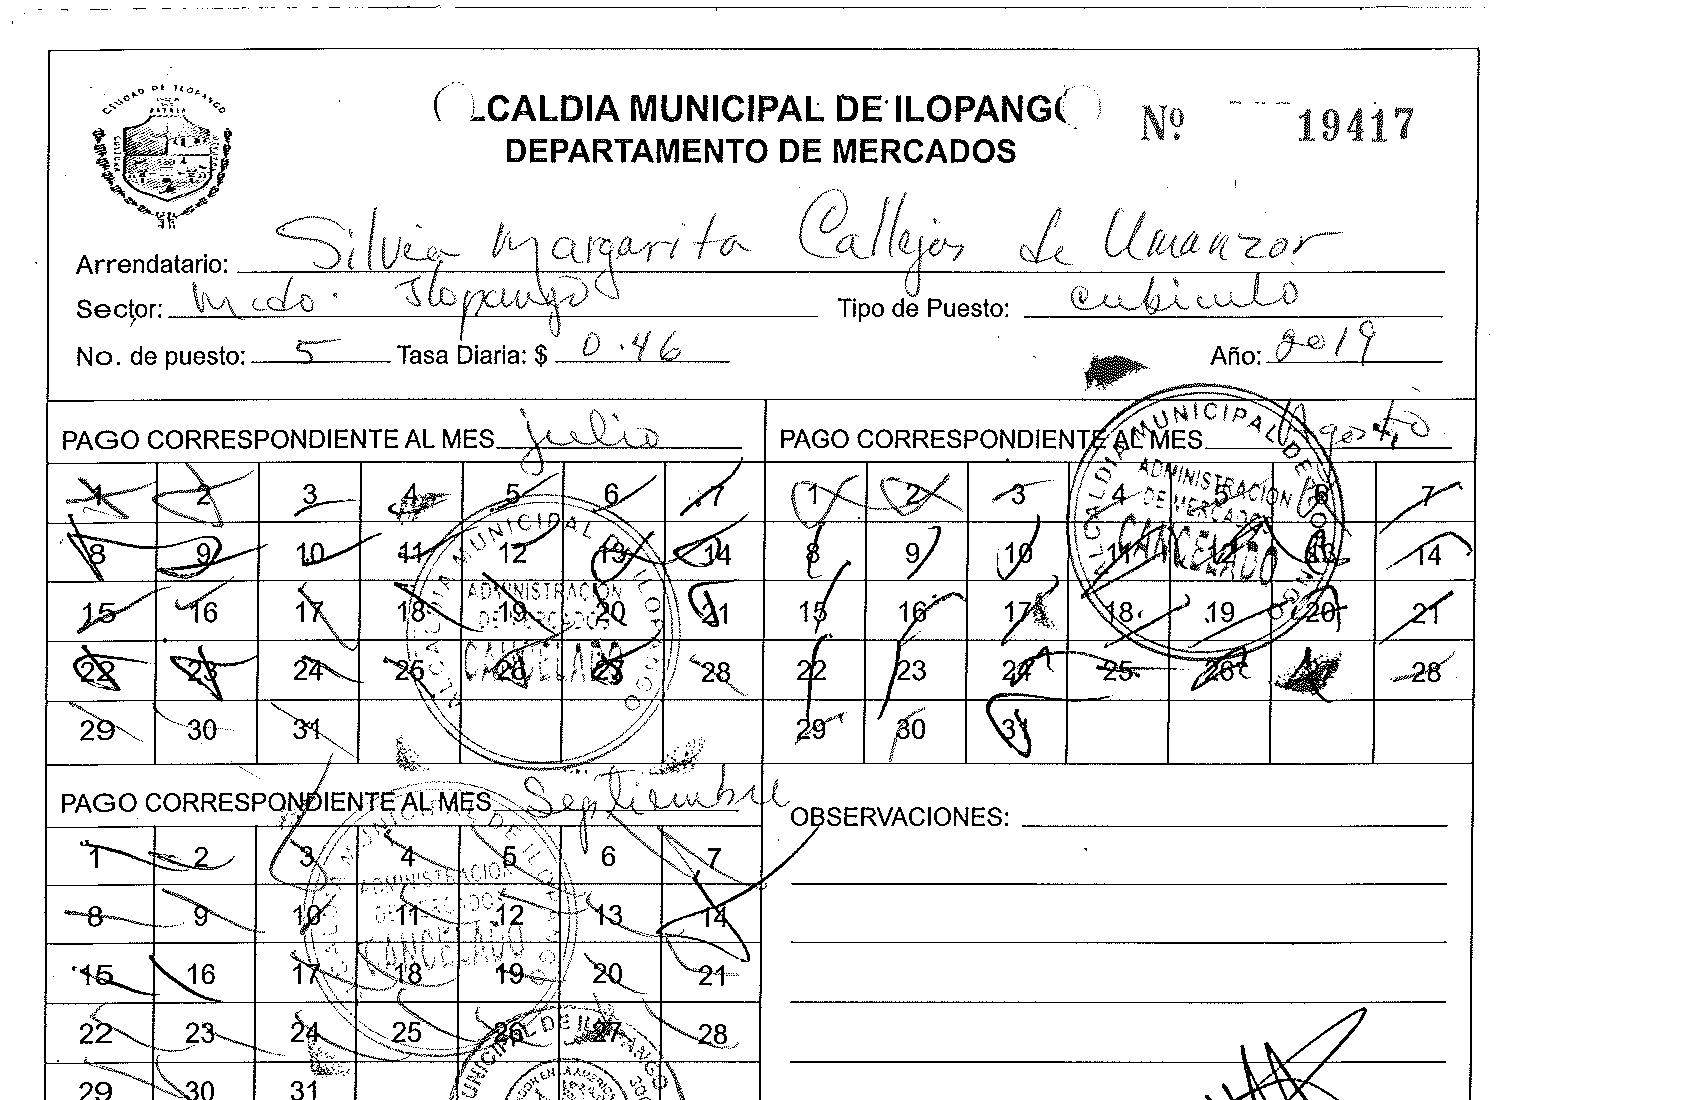 CIUDAD DE ILOPANGO
ALCALDIA MUNICIPAL DE ILOPANGO
DEPARTAMENTO DE MERCADOS
Nº 19417
Arrendatario: Silvia Margarita Callejas de Umanzor
Sector: Mcdo. Ilopango Tipo de Puesto: cubiculo
No. de puesto: 5 Tasa Diaria: $ 0.46 Año: 2019
PAGO CORRESPONDIENTE AL MES julio
1 2 3 4 5 6 7
8 9 10 11 12 13 14
15 16 17 18 19 20 21
22 23 24 25 26 27 28
29 30 31
ALCALDIA MUNICIPAL DE ILOPANGO
ADMINISTRACION
DE MERCADOS
CANCELADO
PAGO CORRESPONDIENTE AL MES Agosto
1 2 3 4 5 6 7
8 9 10 11 12 13 14
15 16 17 18 19 20 21
22 23 24 25 26 27 28
29 30 31
ALCALDIA MUNICIPAL DE ILOPANGO
ADMINISTRACION
DE MERCADOS
CANCELADO
PAGO CORRESPONDIENTE AL MES Septiembre
1 2 3 4 5 6 7
8 9 10 11 12 13 14
15 16 17 18 19 20 21
22 23 24 25 26 27 28
29 30 31
ALCALDIA MUNICIPAL DE ILOPANGO
ADMINISTRACION
DE MERCADOS
CANCELADO
OBSERVACIONES:
MUNICIPAL DE ILOPANGO